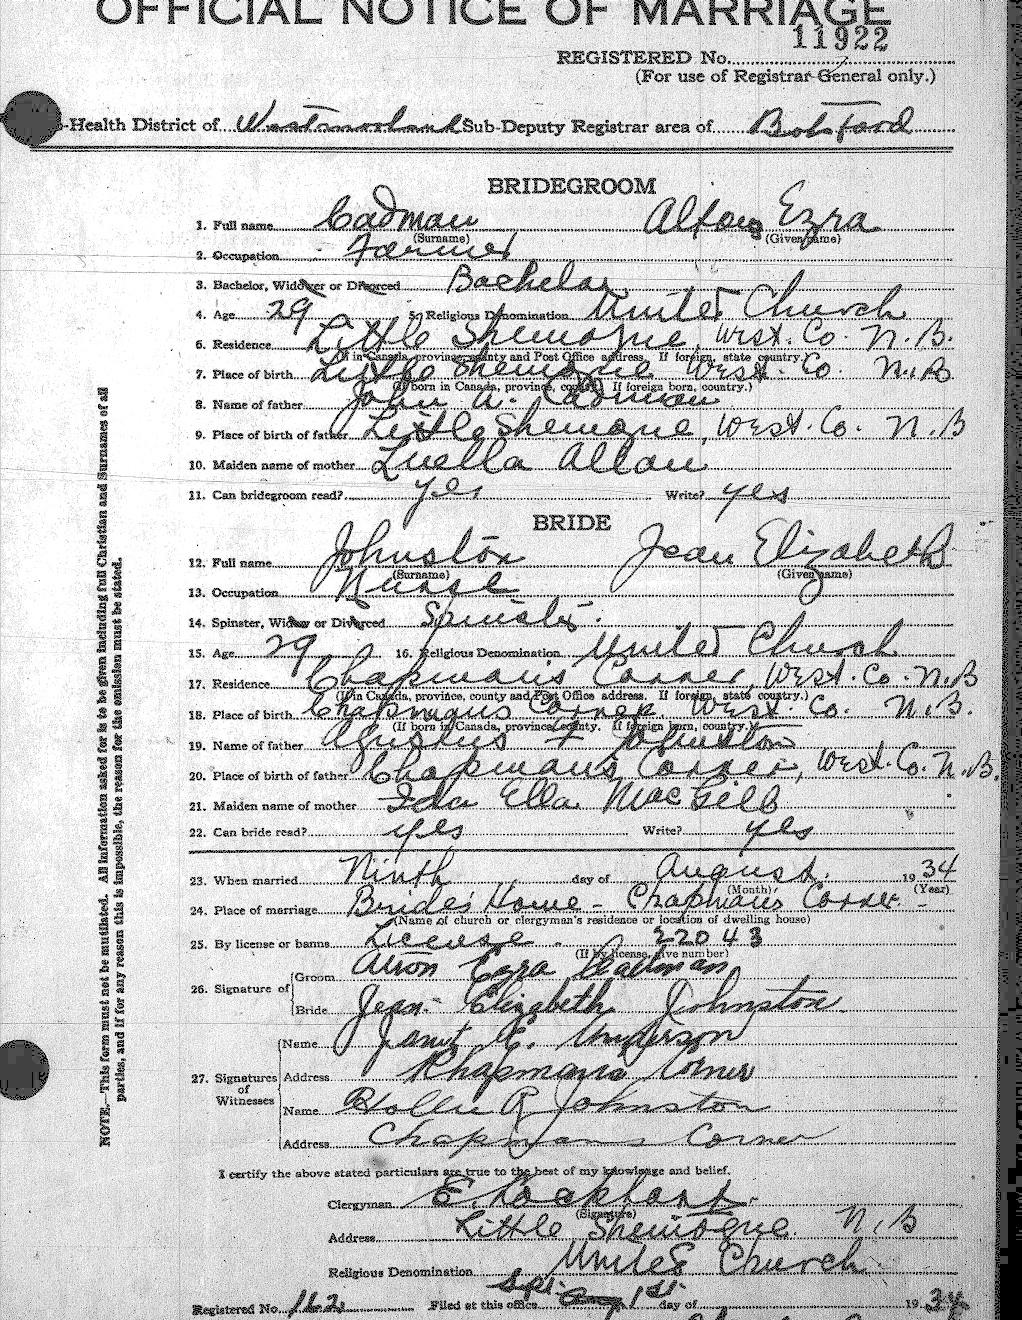 OFFICIAL NOTICE OF MARRIAGE
11922
REGISTERED No.
(For use of Registrar General only.)
-Health District of Westmorland Sub-Deputy Registrar area of Botsford
BRIDEGROOM
1. Full name Cadman Alton Ezra
(Surname) (Given name)
2. Occupation Farmer
3. Bachelor, Widower or Divorced Bachelor
4. Age 29 5. Religious Denomination United Church
6. Residence Little Shemogue, West. Co. N.B.
(If in Canada, province, county and Post Office address. If foreign, state country.)
7. Place of birth Little Shemogue West. Co. N.B
(If born in Canada, province, county. If foreign born, country.)
8. Name of father John W. Cadman
9. Place of birth of father Little Shemogue, West. Co. N.B
10. Maiden name of mother Luella Allan
11. Can bridegroom read? yes Write? yes
BRIDE
12. Full name Johnston Jean Elizabeth
(Surname) (Given name)
13. Occupation Nurse
14. Spinster, Widow or Divorced Spinster.
15. Age 29 16. Religious Denomination United Church
17. Residence Chapmans Corner, West. Co. N.B
(If in Canada, province, county and Post Office address. If foreign, state country.)
18. Place of birth Chapmans Corner, West. Co. N.B.
(If born in Canada, province, county. If foreign born, country.)
19. Name of father Agustus F Johnston
20. Place of birth of father Chapmans Corner, West. Co. N.B.
21. Maiden name of mother Ida Ella MacGill
22. Can bride read? yes Write? yes
23. When married Ninth day of August. 1934
(Month) (Year)
24. Place of marriage Brides Home - Chapmans Corner -
(Name of church or clergyman's residence or location of dwelling house)
25. By license or banns License. 22043
(If by license, give number)
26. Signature of Groom Alton Ezra Cadman
Bride Jean Elizabeth Johnston
27. Signatures of Witnesses
Name Janet E. Anderson
Address Chapmans Corner
Name Hollie R Johnston
Address Chapmans Corner
I certify the above stated particulars are true to the best of my knowledge and belief.
Clergyman E. Lockhart
(Signature)
Address Little Shemogue N.B
Religious Denomination United Church
Registered No. 162 Filed at this office Sept. 1st day of 1934
NOTE.—This form must not be mutilated. All information asked for is to be given including full Christian and Surnames of all
parties, and if for any reason this is impossible, the reason for the omission must be stated.